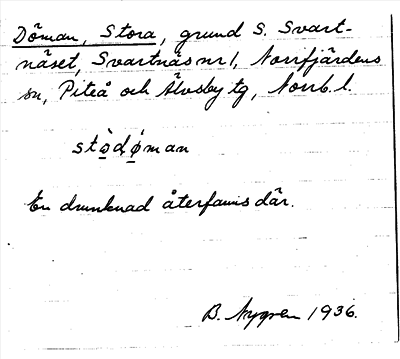 Döman, Stora, grund S. Svart-
näset, Svartnäs nr 1, Norrfjärdens
sn, Piteå och Älvsby tg, Norrb. l.
stòdø̣man
En drunknad återfanns där.
B. Nygren 1936.